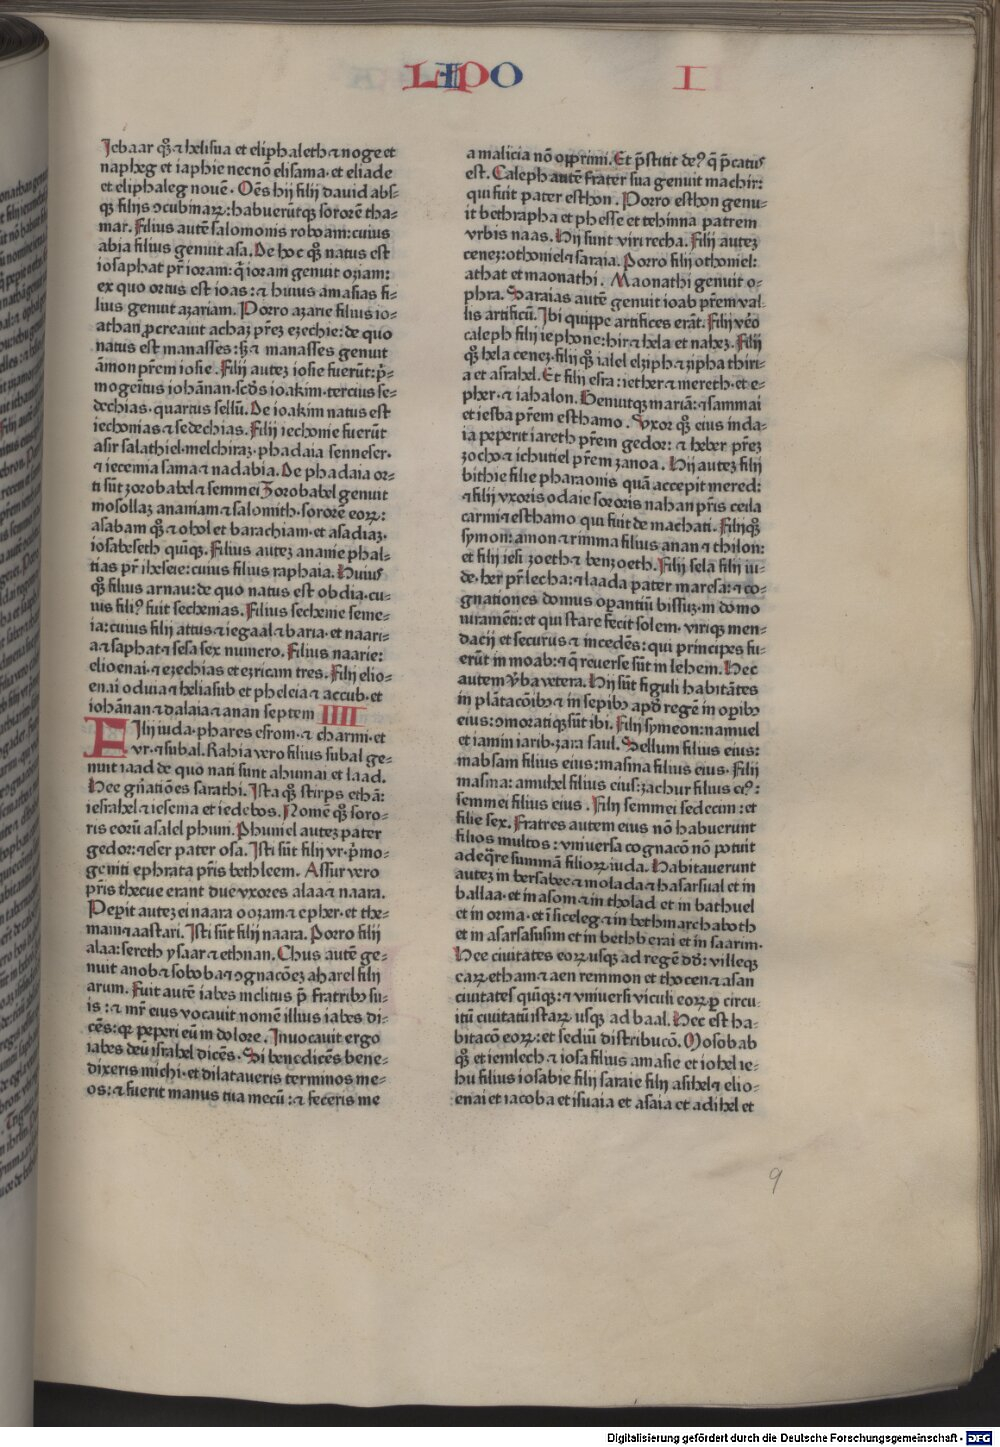 LIPO I
Jebaar qꝫ ⁊ helisua et eliphaleth ⁊ noge et
napheg et iaphie necnō elisama · et eliade
et eliphaleg nouē · Oēs hij filij dauid abs-
qꝫ filijs ɔcubinaꝝ: habuerūtqꝫ sororē tha-
mar. Filius autē salomonis roboam: cuius
abia filius genuit asa. De hoc qꝫ natus est
iosaphat pr̄ ioram: q̄ ioram genuit oziam:
ex quo ortus est ioas: ⁊ huius amasias fi-
lius genuit azariam. Porro azarie filius io-
athan ꝓcreauit achaz p̄reꝫ ezechie: de quo
natus est manasses: sꝫ ⁊ manasses genuit
āmon p̄rem iosie. Filij auteꝫ iosie fuerūt: p̄-
mogeītus iohānan · scd̄s ioakim · tercius se-
dechias · quartus sellū. De ioakim natus est
iechonias ⁊ sedechias. Filij iechonie fuerūt
asir salathiel · melchiraꝫ · phadaia senneser ·
⁊ iecemia sama ⁊ nadabia. De phadaia or-
ti sūt zorobabel ⁊ semmei Zorobabel genuit
mosollaꝫ ananiam ⁊ salomith · sororē eoꝝ:
asabam qꝫ ⁊ ohol et barachiam · et asadiaꝫ ·
iosabeseth quīqꝫ. Filius auteꝫ ananie phal-
tias pr̄ iheseie: cuius filius raphaia. Huiꝰ
qꝫ filius arnau: de quo natus est obdia · cu-
ius filiꝰ fuit sechemas. Filius sechenie seme-
ia: cuius filij attus ⁊ iegaal ⁊ baria · et naari-
a ⁊ saphat ⁊ sesa sex numero. Filius naarie:
elioenai · ⁊ ezechias et ezricam tres. Filij elio-
enai oduia ⁊ heliasub et pheleia ⁊ accub · et
iohānan ⁊ dalaia ⁊ anan septem IIII
Filij iuda · phares esrom · ⁊ charmi · et
vr · ⁊ subal. Rahia vero filius subal ge-
nuit iaad de quo nati sunt ahumai et laad.
Hee gn̄atiōes sarathi. Ista qꝫ stirps ethā:
iesrahel ⁊ iesema et iedebos. Nomē qꝫ soro-
ris eorū asalel phum. Phuniel auteꝫ pater
gedor: ⁊ eser pater osa. Isti sūt filij vr · p̄mo-
geniti ephrata pr̄is bethleem. Assur vero
pr̄is thecue erant due vxores alaa ⁊ naara.
Pepit auteꝫ ei naara oozam ⁊ epher · et the-
mam ⁊ aastari. Isti sūt filij naara. Porro filij
alaa: sereth ysaar ⁊ ethnan. Chus autē ge-
nuit anob ⁊ soboba ⁊ ognacōeꝫ aharel filij
arum. Fuit autē iabes inclitus p̄ fratribꝫ su-
is: ⁊ mr̄ eius vocauit nomē illius iabes di-
cēs: qꝛ peperi eū in dolore. Inuocauit ergo
iabes deū israhel dicēs. Si benedicēs bene-
dixeris michi · et dilataueris terminos me-
os: ⁊ fuerit manus tua mecū: ⁊ feceris me
a malicia nō opp̄rimi. Et p̄stitit deꝰ q̄ p̄catꝰ
est. Caleph autē frater sua genuit machir:
qui fuit pater esthon. Porro esthon genu-
it bethrapha et phesse et tehinna patrem
vrbis naas. Hij sunt viri recha. Filij auteꝫ
ceneꝫ: othoniel ⁊ saraia. Porro filij othoniel:
athat et maonathi. Maonathi genuit o-
phra. Saraias autē genuit ioab p̄rem val-
lis artificū. Ibi quippe artifices erāt. Filij vēo
caleph filij iephone: hir ⁊ hela et naheꝫ. Filij
qꝫ hela ceneꝫ. filij qꝫ ialel elziph ⁊ zipha thiri-
a et asrahel. Et filij esra: iether ⁊ mereth · et e-
pher · ⁊ iahalon. Genuitqꝫ mariā: ⁊ sammai
et iesba p̄rem esthamo. Vxor qꝫ eius inda-
ia peperit iareth p̄rem gedor: ⁊ heber p̄reꝫ
zocho ⁊ ichutiel p̄rem zanoa. Hij auteꝫ filij
bithie filie pharaonis quā accepit mered:
⁊ filij vxoris odaie sororis nahan pr̄is ceila
carmi ⁊ esthamo qui fuit de machati. Filijqꝫ
symon: amon ⁊ rinna filius anan ⁊ thilon:
et filij iesi zoeth ⁊ benzoeth. Filij sela filij iu-
de · her pr̄ lecha: ⁊ laada pater maresa: ⁊ co-
gnationes domus oꝑantiū bissuꝫ · in domo
iurament̄i: et qui stare fecit solem · virīqꝫ men-
dacij et securus ⁊ incedēs: qui principes fu-
erūt in moab: ⁊ q̄ reuerse sūt in lehem. Hec
autem v̄ba vetera. Hij sūt figuli habitātes
in plātacōibꝫ ⁊ in sepibꝫ apd̄ regē in oꝑibꝫ
eius: ɔmoratiqꝫ sūt ibi. Filij symeon: namuel
et iamin iarib · zara saul. Sellum filius eius:
mabsam filius eius: masma filius eius. Filij
masma: amuhel filius eius: zachur filius eiꝰ:
semmei filius eius. Filij semmei sedecim: et
filie sex. Fratres autem eius nō habuerunt
filios multos: vniuersa cognacō nō potuit
adeq̄re summā filioꝝ iuda. Habitauerunt
auteꝫ in bersabee ⁊ molada ⁊ hasarsual et in
ballaa · et in asom ⁊ in tholad et in bathuel
et in orma · et ī siceleg ⁊ in bethmarchaboth
et in asarsasusim et in bethberai et in saarim.
Hee ciuitates eoꝝ usqꝫ ad regē dd̄: villeqꝫ
eaꝝ etham ⁊ aen remmon et thocen ⁊ asan
ciuitates quīqꝫ: ⁊ vniuersi viculi eoꝝ ꝑ circu-
itū ciuitatū istaꝝ usqꝫ ad baal. Hec est ha-
bitacō eoꝝ: et sediū distribucō. Mosobab
qꝫ et iemlech ⁊ iosa filius amasie et iohel ie-
hu filius iosabie filij saraie filij asihel ⁊ elio-
enai et iacoba et isuaia et asaia et adihel et
9
Digitalisierung gefördert durch die Deutsche Forschungsgemeinschaft - DFG